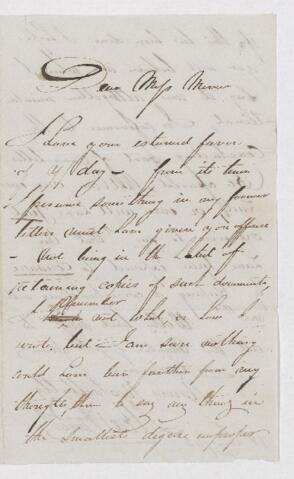 Dear Miss Miner
I have your esteemed favor
of yday - from its tenor
I presume something in my former
letters must have given you offence
- Not being in the habit of
retaining copies of such documents,
I remember not what or how I
wrote. but I am sure nothing
could have been further from my
thoughts, than to say any thing in
the smallest degree improper